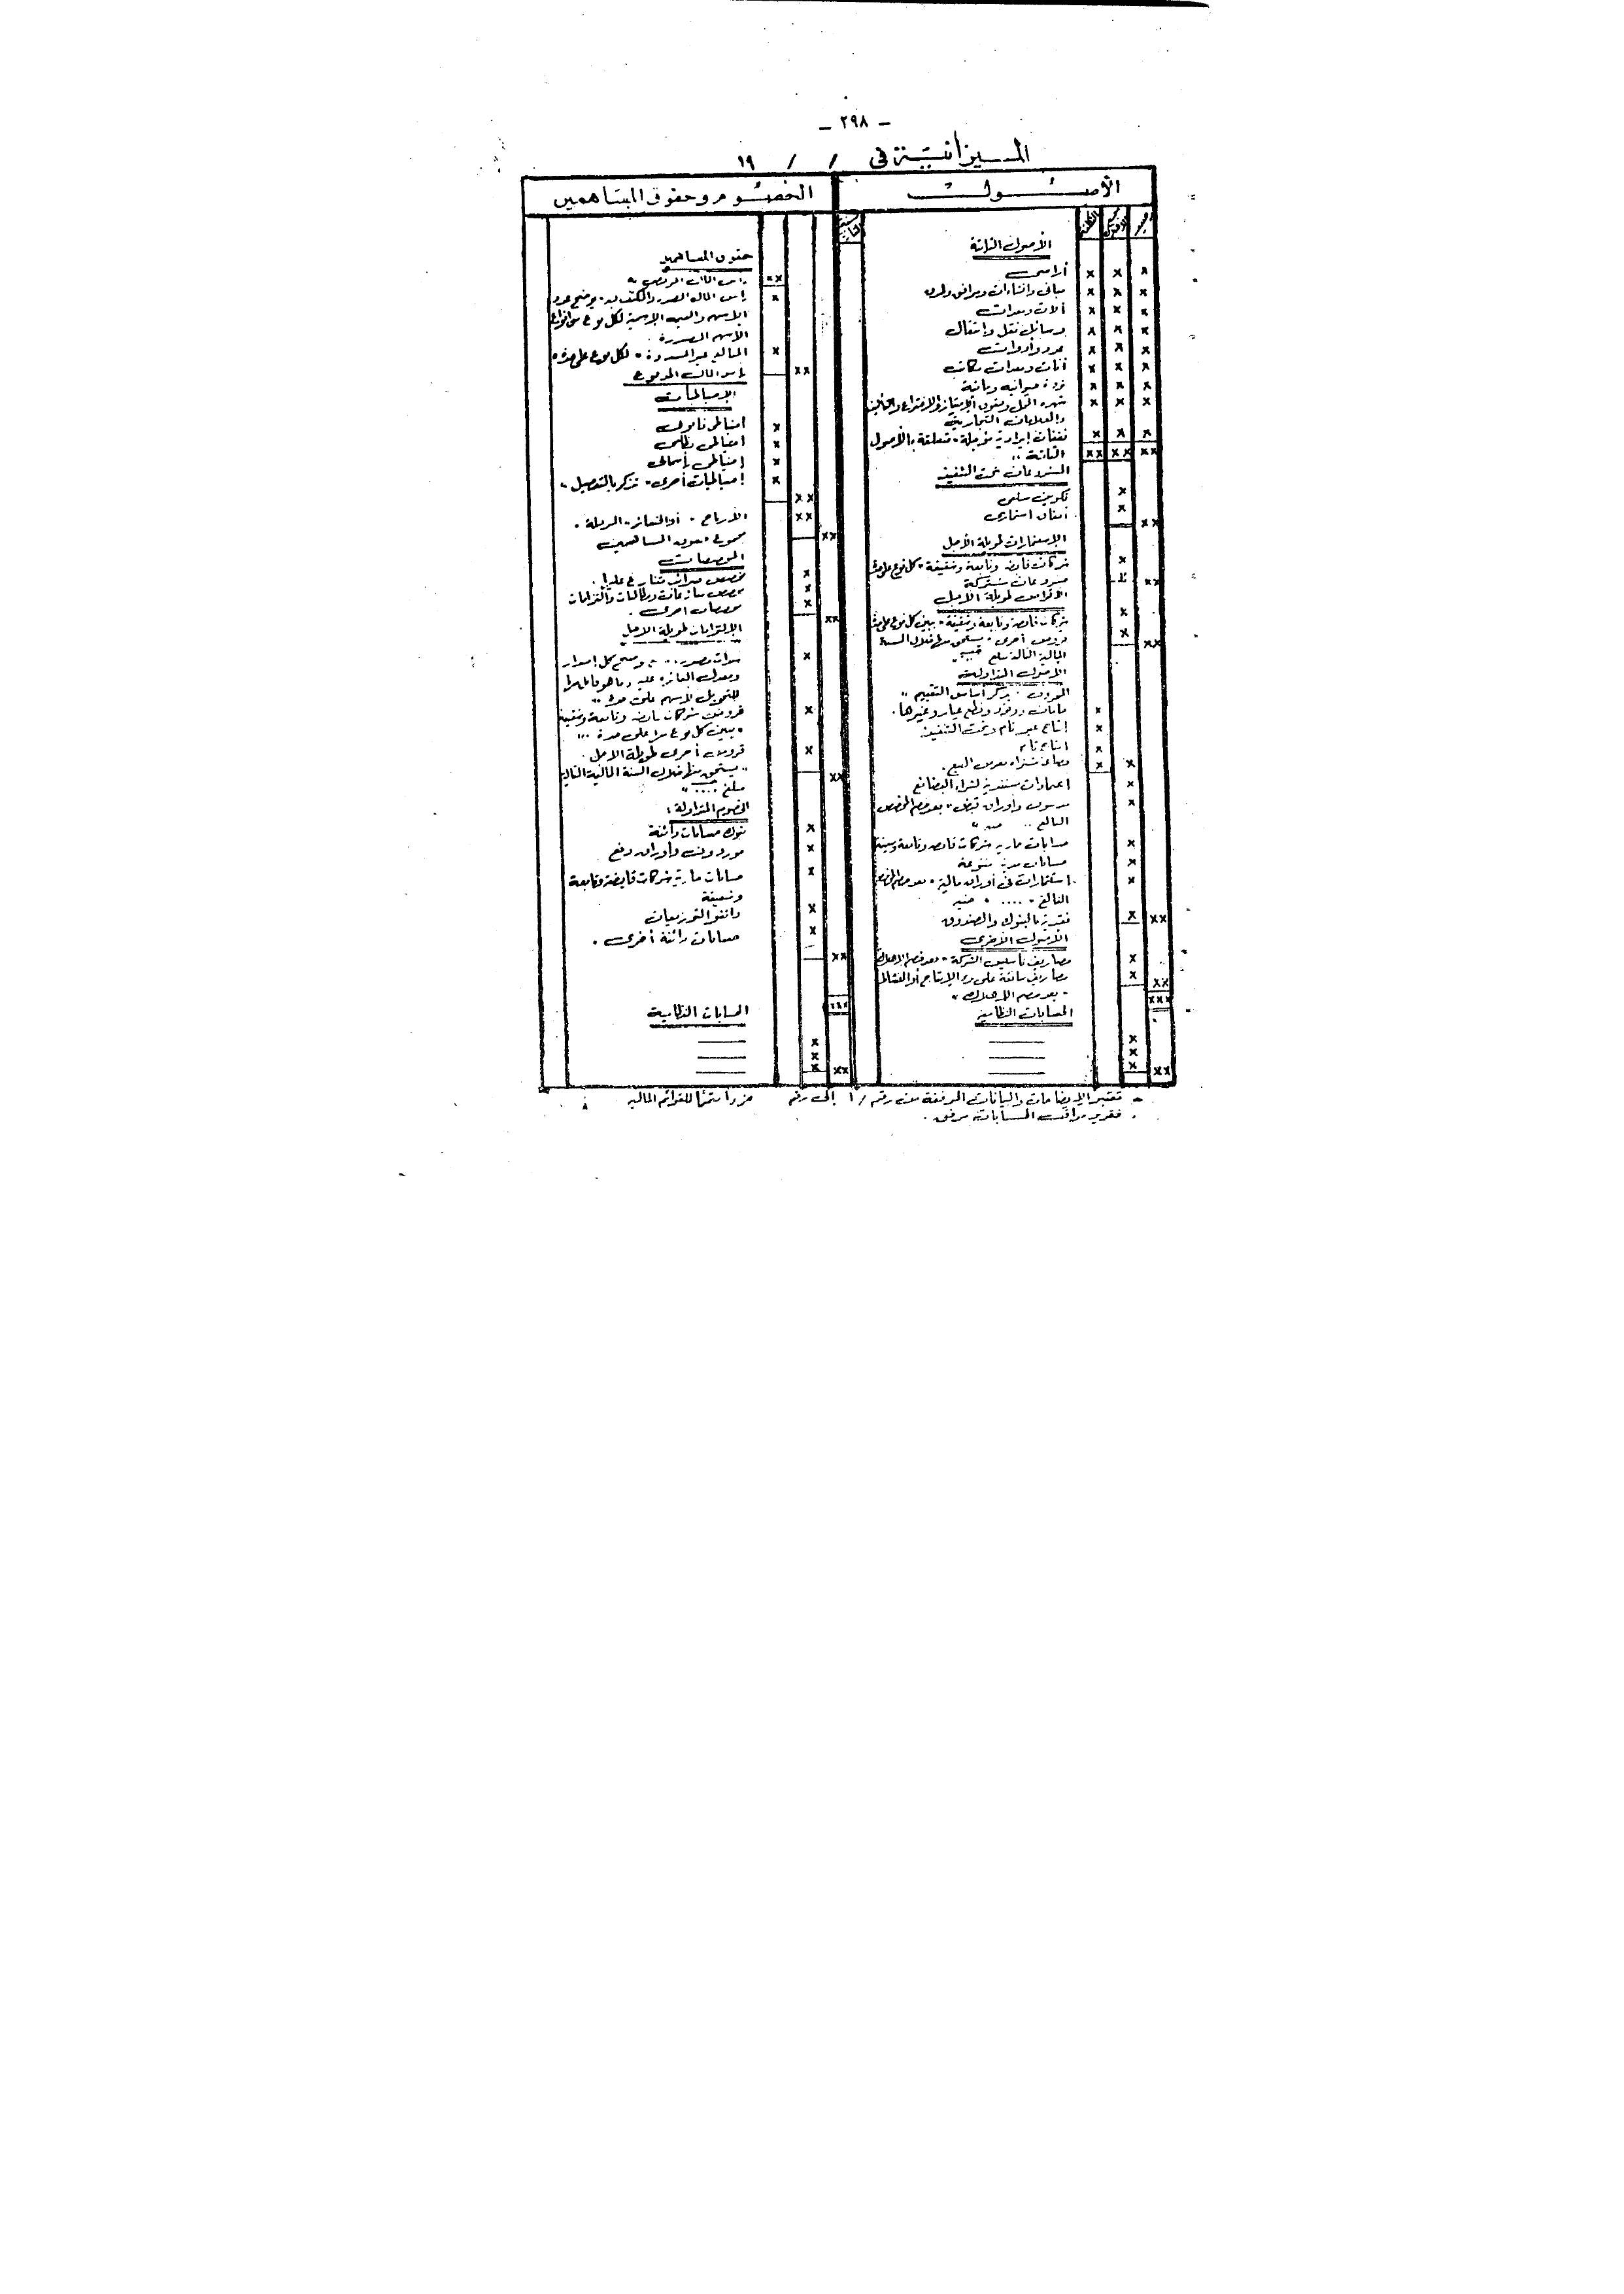 - ٢٩٨ -
الميزانية في / / ١٩
الأصول
الأصول الثابتة
أراضى
مبانى وإنشاءات ومرافق وطرق
آلات ومعدات
وسائل نقل وانتقال
عدد وأدوات
أثاث ومعدات مكاتب
ثروة حيوانية ونباتية
شهرة المحل وحقوق الإمتياز والإختراع والتأليف
والعلامات التجارية
نفقات إيرادية مؤجلة " متعلقة بالأصول
الثابتة "
المشروعات تحت التنفيذ
تكوين سلعى
إنفاق استثمارى
الإستثمارات طويلة الأجل
شركات قابضة وتابعة وشقيقة " كل نوع على حدة
مشروعات مشتركة
الأقراض طويلة الأجل
شركات قابضة وتابعة وشقيقة " يبين كل نوع على حدة
قروض أخرى " يستحق منها خلال السنة
المالية التالية مبلغ جنيه "
الأصول المتداولة
المخزون " يذكر أساس التقييم "
خامات ووقود وقطع غيار وغيرها .
إنتاج غير تام وتحت التنفيذ
إنتاج تام
بضاعة مشتراه بغرض البيع .
اعتمادات مستندية لشراء البضائع
مدينون وأوراق قبض " بعد خصم المخصص
البالغ .. جنيه "
حسابات جارية شركات قابضة وتابعة وشقيقة
حسابات مدينة متنوعة
استثمارات فى أوراق مالية " بعد خصم المخصص
البالغ " .... " جنيه
نقدية بالبنوك والصندوق
الأصول الأخرى
مصاريف تأسيس الشركة " بعد خصم الإهلاك
مصاريف سابقة على بدء الإنتاج أو النشاط
" بعد خصم الإهلاك "
الحسابات النظامية
الخصوم وحقوق المساهمين
حقوق المساهمين
رأس المال المرخص به
رأس المال المصدر والمكتتب به " يوضح عدد
الأسهم والقيمة الإسمية لكل نوع من أنواع
الأسهم المصدرة
المبالغ غير المسددة " لكل نوع على حدة "
رأس المال المدفوع
الإحتياطيات
احتياطى قانونى
احتياطى نظامى
احتياطى رأسمالى
احتياطيات أخرى " تذكر بالتفصيل "
الأرباح " أو الخسائر " المرحلة .
مجموع حقوق المساهمين
المخصصات
مخصص ضرائب متنازع عليها .
مخصص منازعات ومطالبات والتزامات
مخصصات أخرى .
الإلتزامات طويلة الأجل
سندات مصدرة .. " يوضح كل إصدار
ومعدل الفائدة عليه وما هو قابل منها
للتحويل لأسهم على حدة "
قروض شركات قابضة وتابعة وشقيقة
" يبين كل نوع منها على حدة "
قروض أخرى طويلة الأجل
" يستحق منها خلال السنة المالية التالية
مبلغ .... جنيه "
الخصوم المتداولة :
بنوك حسابات دائنة
موردون وأوراق دفع
حسابات جارية شركات قابضة وتابعة
وشقيقة
دائنو التوزيعات
حسابات دائنة أخرى .
الحسابات النظامية
- تعتبر الإيضاحات والبيانات المرفقة من رقم /١ إلى رقم جزءا متمما للقوائم المالية
. تقرير مراقب الحسابات مرفق .